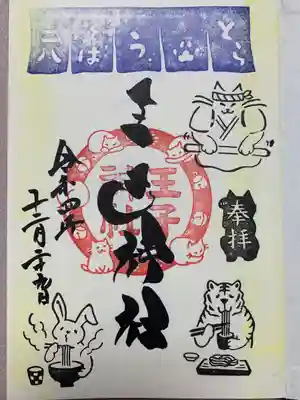 とら
う
そば
処
奉拝
王子神社
王子
神社
令和四年
十二月